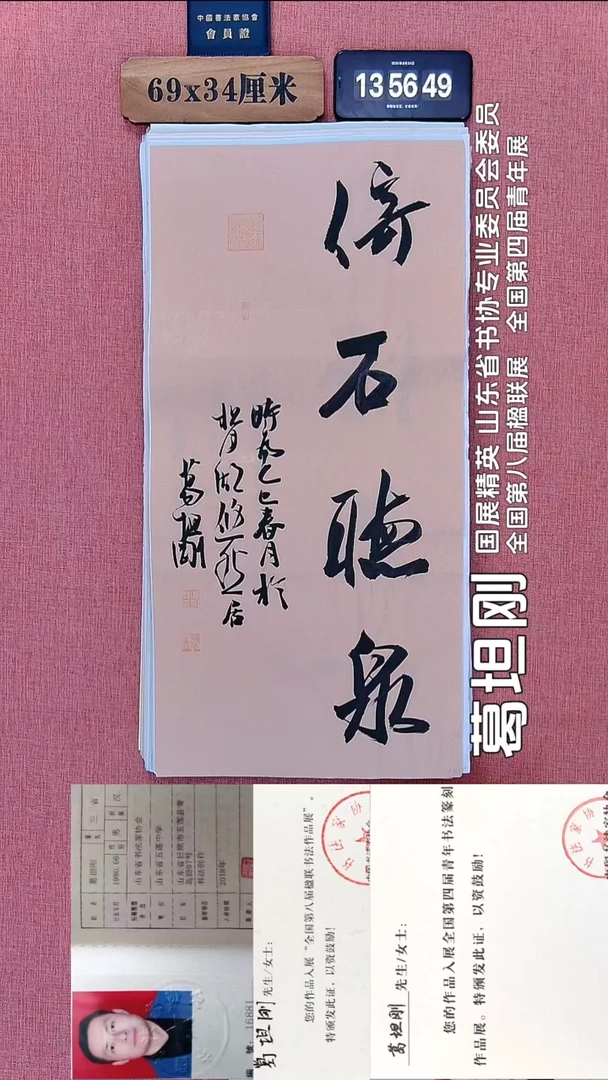 中國書法家協會
會員證
69x34厘米
13 56 49
倚石聽泉
時在乙巳春月於
松月湖修齋居
葛坦刚
国展精英 山东省书协专业委员会委员
全国第八届楹联展 全国第四届青年展
葛坦刚
山东省书法家协会
山东省五莲中学
2018年
16881
葛坦刚 先生/女士:
您的作品入展“全国第八届楹联书法作品展”。
特颁发此证,以资鼓励!
葛坦刚 先生/女士:
您的作品入展全国第四届青年书法篆刻
作品展。特颁发此证,以资鼓励!